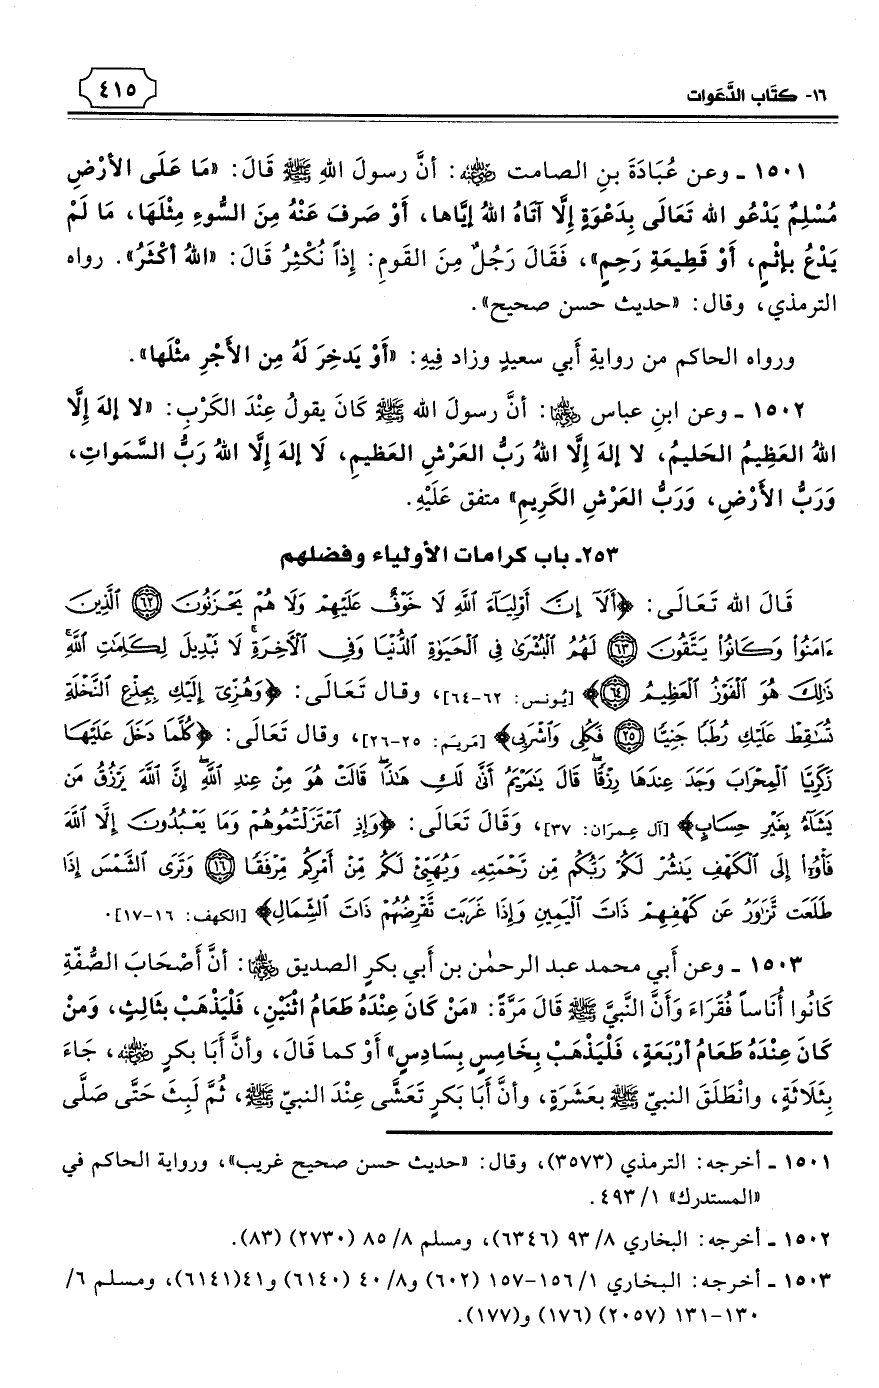 ١٦- كتَاب الدَّعَوات
٤١٥
١٥٠١ ـ وعن عُبَادَةَ بنِ الصامت رضي الله عنه: أنَّ رسولَ اللهِ ﷺ قَالَ: «مَا عَلَى الأرْضِ
مُسْلِمٌ يَدْعُو الله تَعَالَى بِدَعْوَةٍ إِلَّا آتَاهُ اللهُ إيَّاها، أَوْ صَرفَ عَنْهُ مِنَ السُّوءِ مِثْلَهَا، مَا لَمْ
يَدْعُ بإثْمٍ، أَوْ قَطِيعَةِ رَحِمٍ»، فَقَالَ رَجُلٌ مِنَ القَومِ: إذاً نُكْثِرُ قَالَ: «اللهُ أكْثَرُ». رواه
الترمذي، وقال: «حديث حسن صحيح».
ورواه الحاكم من روايةِ أبي سعيدٍ وزاد فِيهِ: «أَوْ يَدخِرَ لَهُ مِن الأَجْرِ مثْلَها».
١٥٠٢ ـ وعن ابنِ عباس رضي الله عنهما: أنَّ رسولَ الله ﷺ كَانَ يقولُ عِنْدَ الكَرْبِ: «لا إلهَ إِلَّا
اللهُ العَظِيمُ الحَليمُ، لا إلهَ إِلَّا اللهُ رَبُّ العَرْشِ العَظيمِ، لَا إلهَ إِلَّا اللهُ رَبُّ السَّمَواتِ،
وَرَبُّ الأَرْضِ، وَرَبُّ العَرْشِ الكَرِيمِ» متفق عَلَيْهِ.
٢٥٣ـ باب كرامات الأولياء وفضلهم
قَالَ الله تَعَالَى: ﴿أَلَآ إِنَّ أَوْلِيَآءَ ٱللَّهِ لَا خَوْفٌ عَلَيْهِمْ وَلَا هُمْ يَحْزَنُونَ ٦٢ ٱلَّذِينَ
ءَامَنُوا۟ وَكَانُوا۟ يَتَّقُونَ ٦٣ لَهُمُ ٱلْبُشْرَىٰ فِى ٱلْحَيَوٰةِ ٱلدُّنْيَا وَفِى ٱلْءَاخِرَةِ ۚ لَا نَبْدِيلَ لِكَلِمَٰتِ ٱللَّهِ ۚ
ذَٰلِكَ هُوَ ٱلْفَوْزُ ٱلْعَظِيمُ ٦٤﴾ [يُونس: ٦٢-٦٤]، وقال تَعَالَى: ﴿وَهُزِّىٓ إِلَيْكِ بِجِذْعِ ٱلنَّخْلَةِ
تُسَٰقِطْ عَلَيْكِ رُطَبًا جَنِيًّا ٢٥ فَكُلِى وَٱشْرَبِى﴾ [مَريَم: ٢٥-٢٦]، وقال تَعَالَى: ﴿كُلَّمَا دَخَلَ عَلَيْهَا
زَكَرِيَّا ٱلْمِحْرَابَ وَجَدَ عِندَهَا رِزْقًا ۖ قَالَ يَٰمَرْيَمُ أَنَّىٰ لَكِ هَٰذَا ۖ قَالَتْ هُوَ مِنْ عِندِ ٱللَّهِ ۖ إِنَّ ٱللَّهَ يَرْزُقُ مَن
يَشَآءُ بِغَيْرِ حِسَابٍ﴾ [آل عِمرَان: ٣٧]، وَقَالَ تَعَالَى: ﴿وَإِذِ ٱعْتَزَلْتُمُوهُمْ وَمَا يَعْبُدُونَ إِلَّا ٱللَّهَ
فَأْوُۥٓا۟ إِلَى ٱلْكَهْفِ يَنشُرْ لَكُمْ رَبُّكُم مِّن رَّحْمَتِهِۦ وَيُهَيِّئْ لَكُم مِّنْ أَمْرِكُم مِّرْفَقًا ١٦ وَتَرَى ٱلشَّمْسَ إِذَا
طَلَعَت تَّزَٰوَرُ عَن كَهْفِهِمْ ذَاتَ ٱلْيَمِينِ وَإِذَا غَرَبَت تَّقْرِضُهُمْ ذَاتَ ٱلشِّمَالِ﴾ [الكهف: ١٦-١٧].
١٥٠٣ ـ وعن أبي محمد عبد الرحمٰن بن أبي بكرٍ الصديق رضي الله عنهما: أنَّ أَصْحَابَ الصُّفّةِ
كَانُوا أُنَاساً فُقَرَاءَ وَأنَّ النَّبيَّ ﷺ قَالَ مَرَّةً: «مَنْ كَانَ عِنْدَهُ طَعَامُ اثْنَيْنِ، فَلْيَذْهَبْ بثَالِثٍ، وَمنْ
كَانَ عِنْدَهُ طَعَامُ أرْبَعَةٍ، فَلْيَذْهَبْ بِخَامِسٍ بِسَادِسٍ» أَوْ كما قَالَ، وأنَّ أَبَا بكرٍ رضي الله عنه، جَاءَ
بِثَلَاثَةٍ، وانْطَلَقَ النبيّ ﷺ بعَشَرَةٍ، وأنَّ أبَا بَكرٍ تَعَشَّى عِنْدَ النبيّ ﷺ، ثُمَّ لَبِثَ حَتَّى صَلَّى
١٥٠١ ـ أخرجه: الترمذي (٣٥٧٣)، وقال: «حديث حسن صحيح غريب»، ورواية الحاكم في
«المستدرك» ١/ ٤٩٣.
١٥٠٢ ـ أخرجه: البخاري ٨/ ٩٣ (٦٣٤٦)، ومسلم ٨/ ٨٥ (٢٧٣٠) (٨٣).
١٥٠٣ ـ أخرجه: البخاري ١/ ١٥٦-١٥٧ (٦٠٢) و٨/ ٤٠ (٦١٤٠) و٤١(٦١٤١)، ومسلم ٦/
١٣٠-١٣١ (٢٠٥٧) (١٧٦) و(١٧٧).